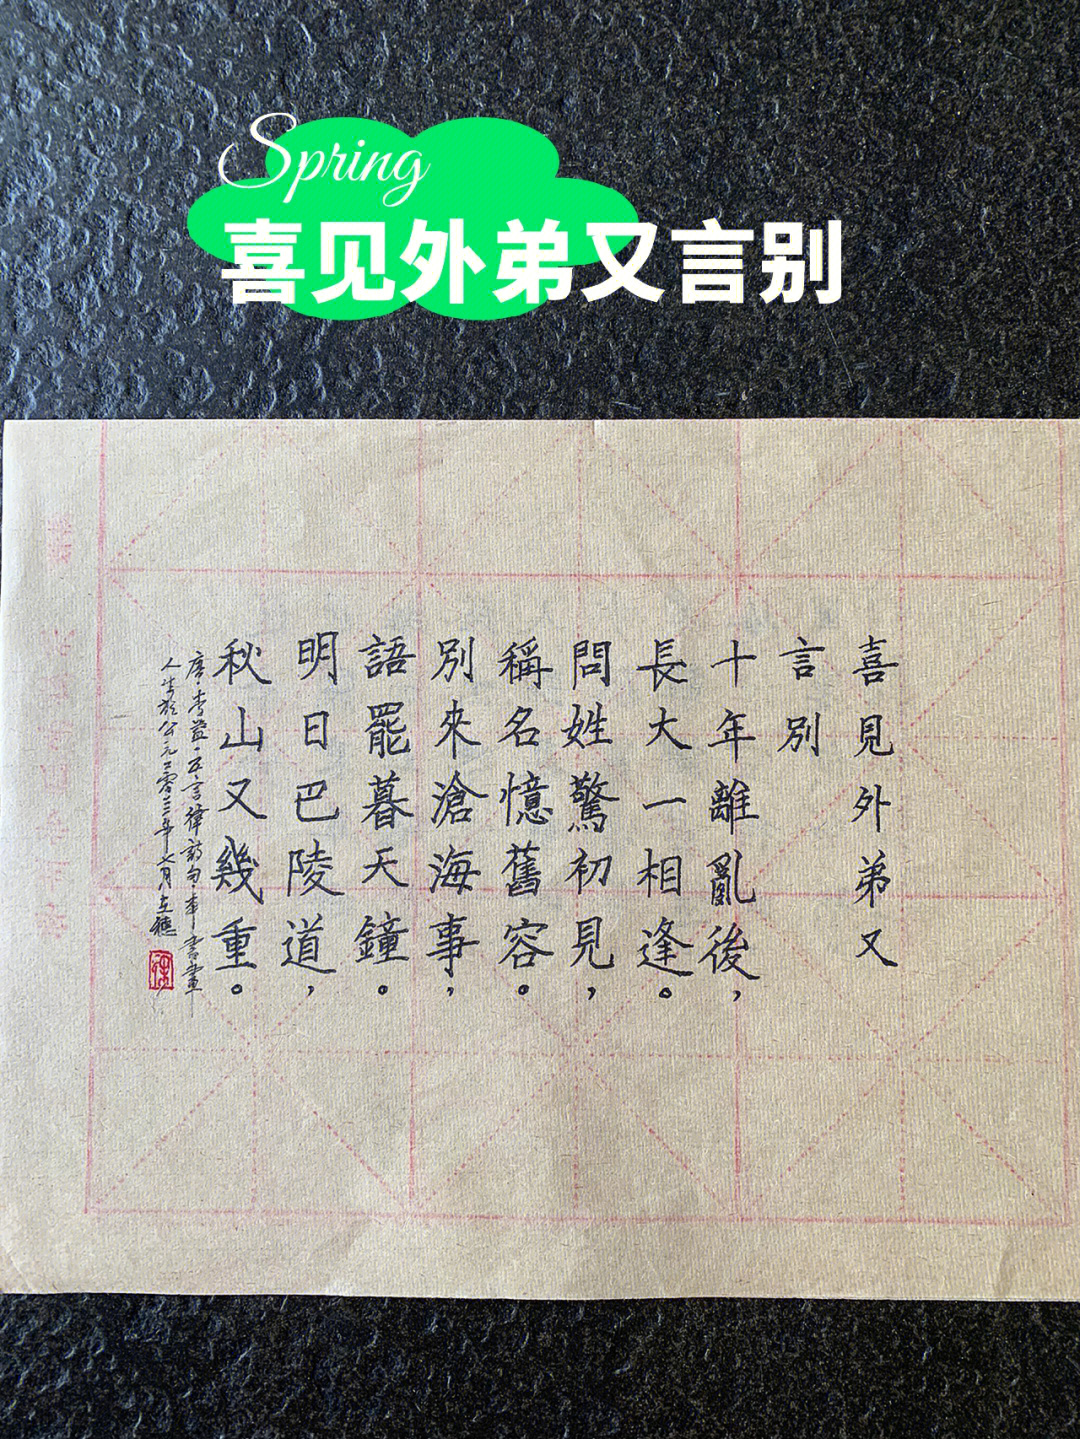 Spring
喜见外弟又言别
喜見外弟又
言別
十年離亂後，
長大一相逢。
問姓驚初見，
稱名憶舊容。
別來滄海事，
語罷暮天鐘。
明日巴陵道，
秋山又幾重。
唐李益五言律詩句
公元二零二三年六月